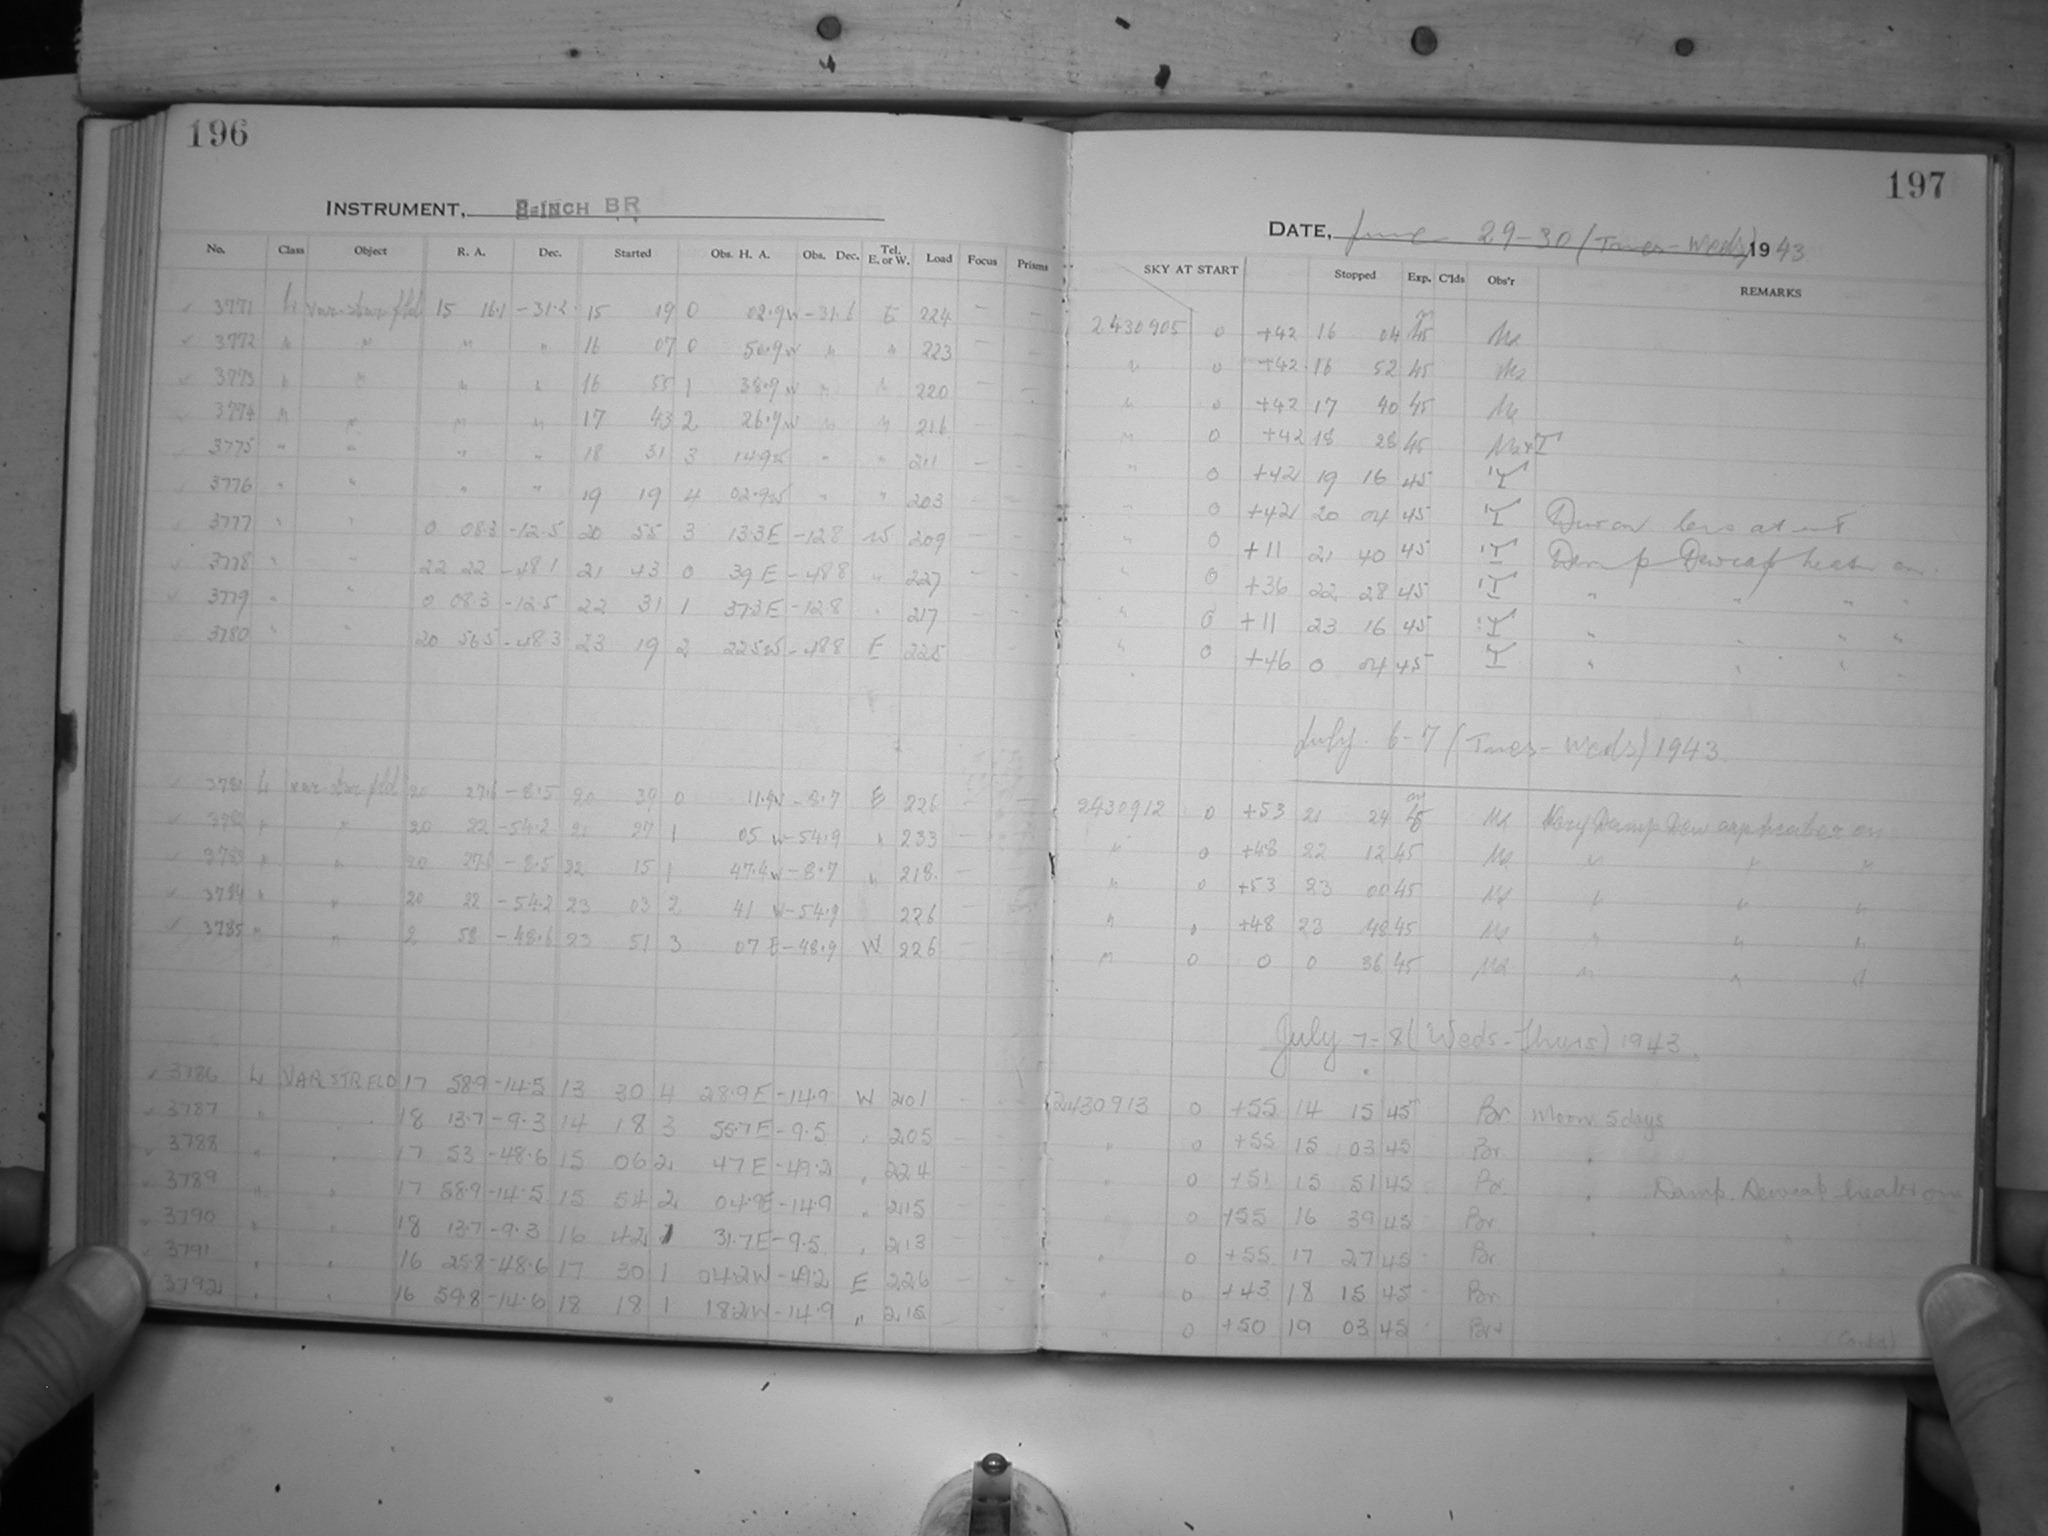 196
INSTRUMENT, 8-INCH BR
No. Class Object R. A. Dec. Started Obs. H. A. Obs. Dec. Tel. E. or W. Load Focus Prisms
3771 L var. star fld 15 16.1 -31.2 15 19 0 02.9w -31.6 E 224 — —
3772 " " " " 16 07 0 50.9w " " 223 — —
3773 " " " " 16 55 1 38.9w " " 220 — —
3774 " " " " 17 43 2 26.9w " " 216 — —
3775 " " " " 18 31 3 14.9w " " 211 — —
3776 " " " " 19 19 4 02.9w " " 203 — —
3777 " " 0 08.3 -12.5 20 55 3 13.3E -12.8 W 209 — —
3778 " " 22 22 -48.1 21 43 0 39 E -48.8 " 227 — —
3779 " " 0 08.3 -12.5 22 31 1 37.3E -12.8 " 217 — —
3780 " " 20 56.5 -48.3 23 19 2 22.5w -48.8 E 225 — —
3781 L var star fld 20 27.6 -8.5 20 39 0 11.4w -8.7 E 226 — —
3782 " " 20 22 -54.2 21 27 1 05 w -54.9 " 233 —
3783 " " 20 27.6 -8.5 22 15 1 47.4w -8.7 " 218 —
3784 " " 20 22 -54.2 23 03 2 41 w -54.9 226 —
3785 " " 2 58 -48.6 23 51 3 07 E -48.9 W 226 —
3786 L VAR STR FLD 17 58.9 -14.5 13 30 4 28.9E -14.9 W 201 — —
3787 " " 18 13.7 -9.3 14 18 3 55.7E -9.5 " 205 — —
3788 " " 17 53 -48.6 15 06 2 47E -49.2 " 224 — —
3789 " " 17 58.9 -14.5 15 54 2 04.9E -14.9 " 215 — —
3790 " " 18 13.7 -9.3 16 42 1 31.7E -9.5 " 213 — —
3791 " " 16 25.8 -48.6 17 30 1 04.2W -49.2 E 226 — —
3792 " " 16 59.8 -14.6 18 18 1 18.2W -14.9 " 215 — —
197
DATE, June 29-30 (Tues-Weds) 1943
SKY AT START Stopped Exp. C'lds Obs'r REMARKS
2430905 0 +42 16 04 45m Ma
" 0 +42 16 52 45 Ma
" 0 +42 17 40 45 Ma
" 0 +42 18 28 45
" 0 +42 19 16 45
" 0 +42 20 04 45
" 0 +11 21 40 45 Damp Dewcap heater on
" 0 +36 22 28 45 " " " "
" 0 +11 23 16 45 " " " "
" 0 +46 0 04 45 " " " "
July 6-7 (Tues-Weds) 1943
2430912 0 +53 21 24 45m Ma Very Damp Dew cap heater on
" 0 +48 22 12 45 Ma " " "
" 0 +53 23 00 45 Ma " " "
" " +48 23 48 45 Ma " " "
" 0 0 0 36 45 Ma " " "
July 7-8 (Weds-Thurs) 1943
2430913 0 +55 14 15 45 Br Moon 5 days
" 0 +55 15 03 45 Br "
" 0 +51 15 51 45 Br " Damp. Dewcap heater on
" 0 +55 16 39 45 Br " "
" 0 +55 17 27 45 Br "
" 0 +43 18 15 45 Br "
" 0 +50 19 03 45 "
(Contd)